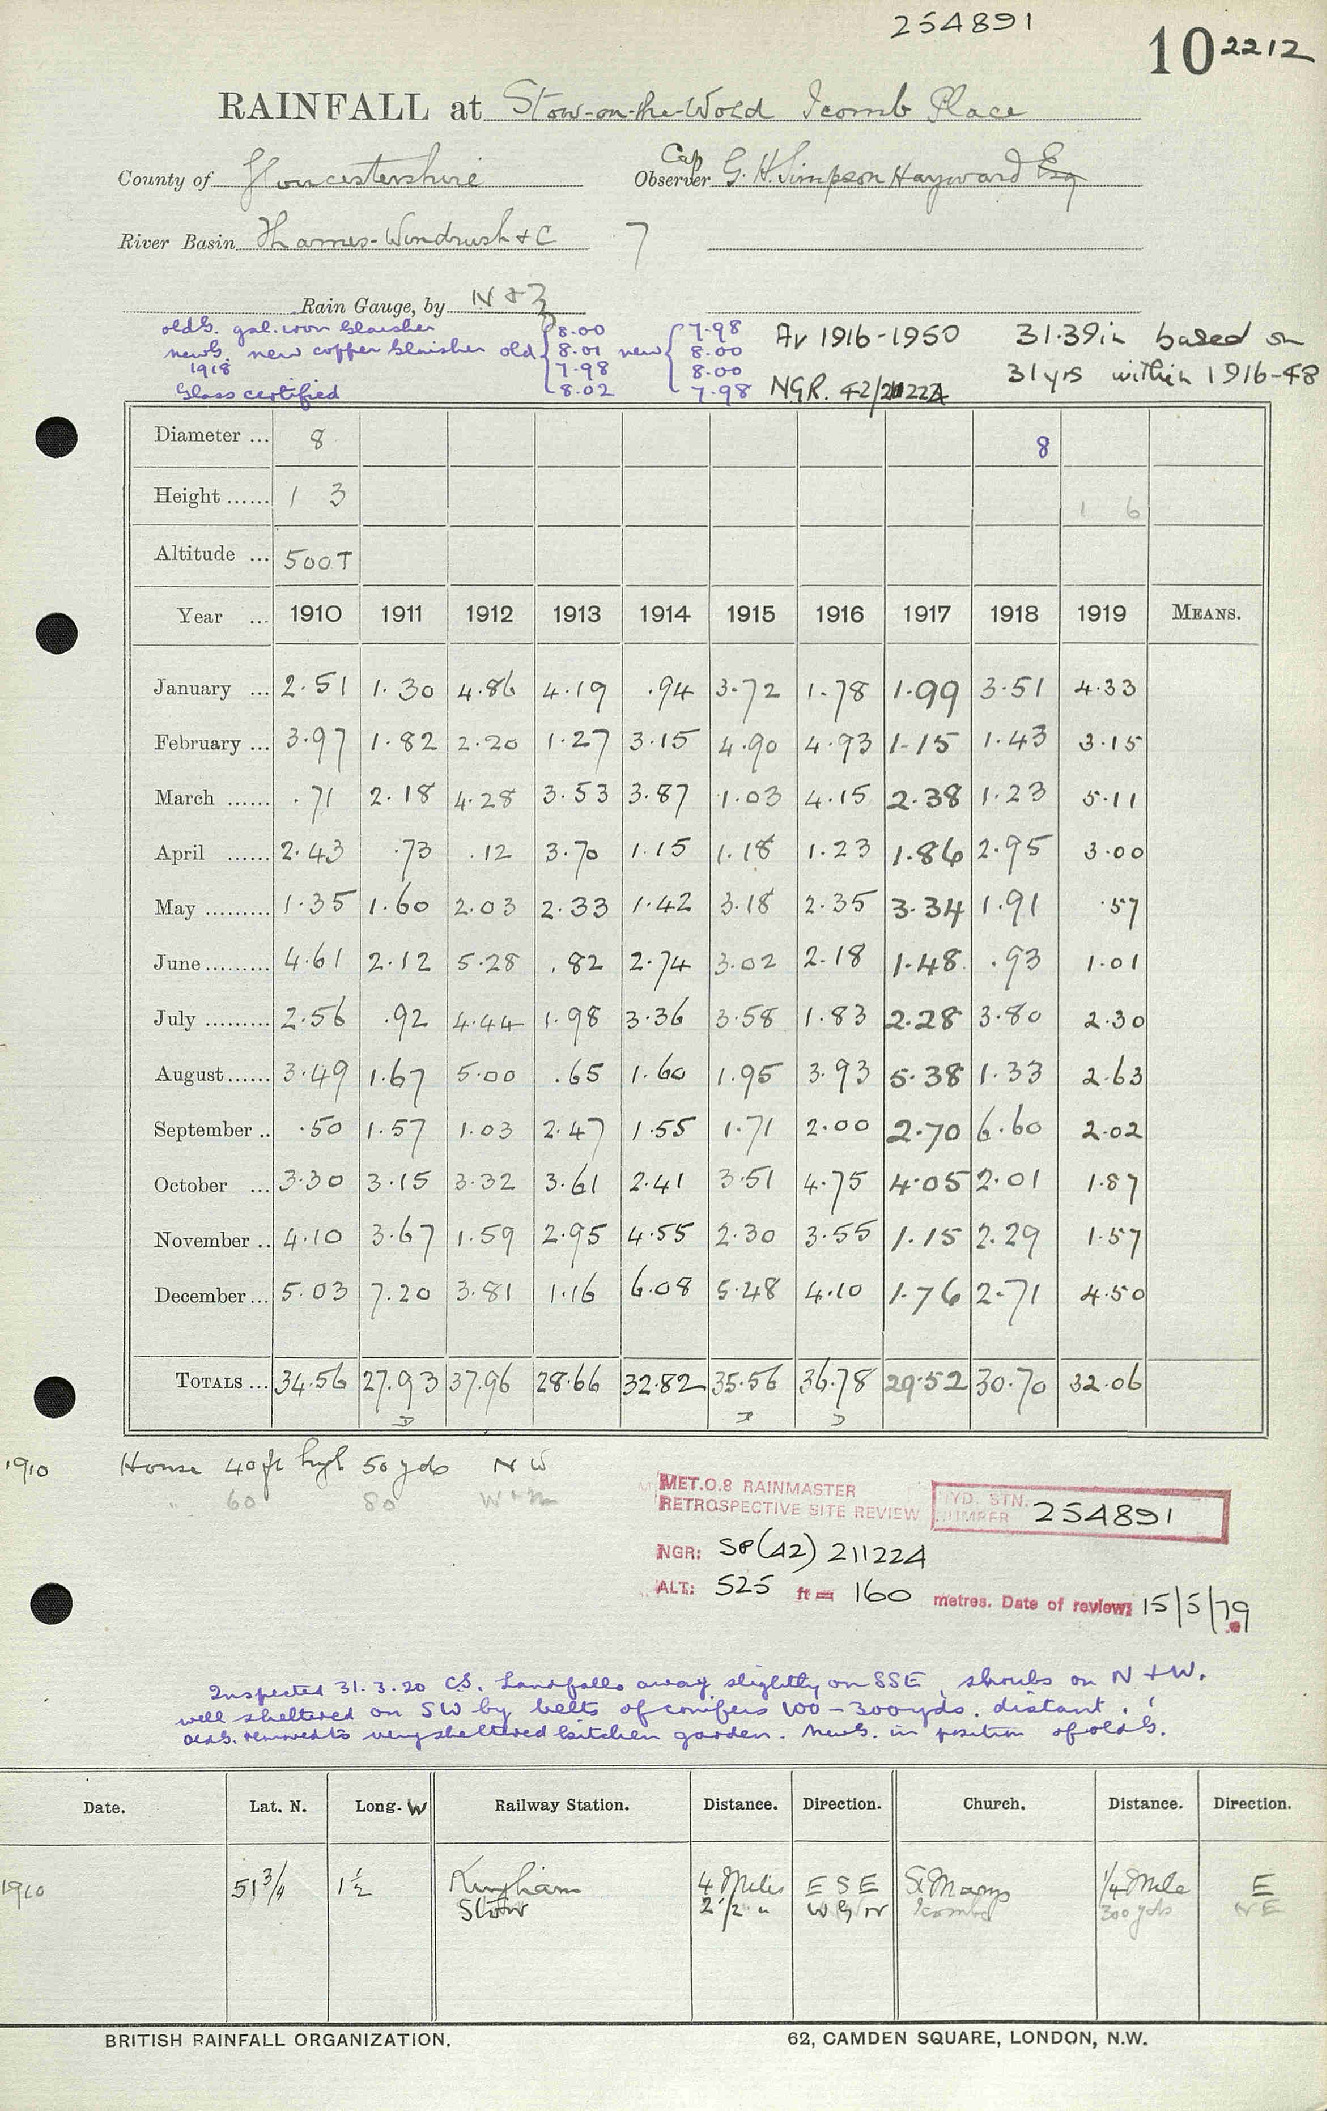 254891
10 2212
RAINFALL at Stow-on-the-Wold Icomb Place
County of Gloucestershire Observer Cap G. H. Simpson Hayward Esq
River Basin Thames-Windrush & C 7
Rain Gauge, by N & Z
old G. gal. iron Glaisher
new G. new copper Glaisher old { 8.00 8.01 7.98 8.02 new { 7.98 8.00 8.00 7.98
1918
Glass certified
Av 1916-1950 31.39in based on
31 yrs within 1916-48
NGR. 42/211224
Diameter ... 8 8
Height ...... 1 3 1 6
Altitude ... 500T
Year ... 1910 1911 1912 1913 1914 1915 1916 1917 1918 1919 MEANS.
January ... 2.51 1.30 4.86 4.19 .94 3.72 1.78 1.99 3.51 4.33
February ... 3.97 1.82 2.20 1.27 3.15 4.90 4.93 1.15 1.43 3.15
March ...... .71 2.18 4.28 3.53 3.87 1.03 4.15 2.38 1.23 5.11
April ...... 2.43 .73 .12 3.70 1.15 1.18 1.23 1.86 2.95 3.00
May ......... 1.35 1.60 2.03 2.33 1.42 3.18 2.35 3.34 1.91 .57
June ......... 4.61 2.12 5.28 .82 2.74 3.02 2.18 1.48 .93 1.01
July ......... 2.56 .92 4.44 1.98 3.36 3.58 1.83 2.28 3.80 2.30
August ...... 3.49 1.67 5.00 .65 1.60 1.95 3.93 5.38 1.33 2.63
September .. .50 1.57 1.03 2.47 1.55 1.71 2.00 2.70 6.60 2.02
October ... 3.30 3.15 3.32 3.61 2.41 3.51 4.75 4.05 2.01 1.87
November .. 4.10 3.67 1.59 2.95 4.55 2.30 3.55 1.15 2.29 1.57
December ... 5.03 7.20 3.81 1.16 6.08 5.48 4.10 1.76 2.71 4.50
TOTALS ... 34.56 27.93 37.96 28.66 32.82 35.56 36.78 29.52 30.70 32.06
1910 House 40 ft high 50 yds NW
" 60 80
MET.O.8 RAINMASTER
RETROSPECTIVE SITE REVIEW
HYD. STN. NUMBER 254891
NGR: SP(42) 211224
ALT: 525 ft = 160 metres. Date of review: 15/5/79
Inspected 31.3.20 CS. Land falls away slightly on SSE, shrubs on N & W.
well sheltered on SW by belts of conifers 100 - 300 yds. distant.
old G. removed to very sheltered kitchen garden. New G. in position of old G.
Date. Lat. N. Long. W Railway Station. Distance. Direction. Church. Distance. Direction.
1910 51 3/4 1 1/2 Kingham 4 Miles E S E St Marys 1/4 Mile E
Stow 2 1/2 " Icomb 300 yds N E
BRITISH RAINFALL ORGANIZATION. 62, CAMDEN SQUARE, LONDON, N.W.